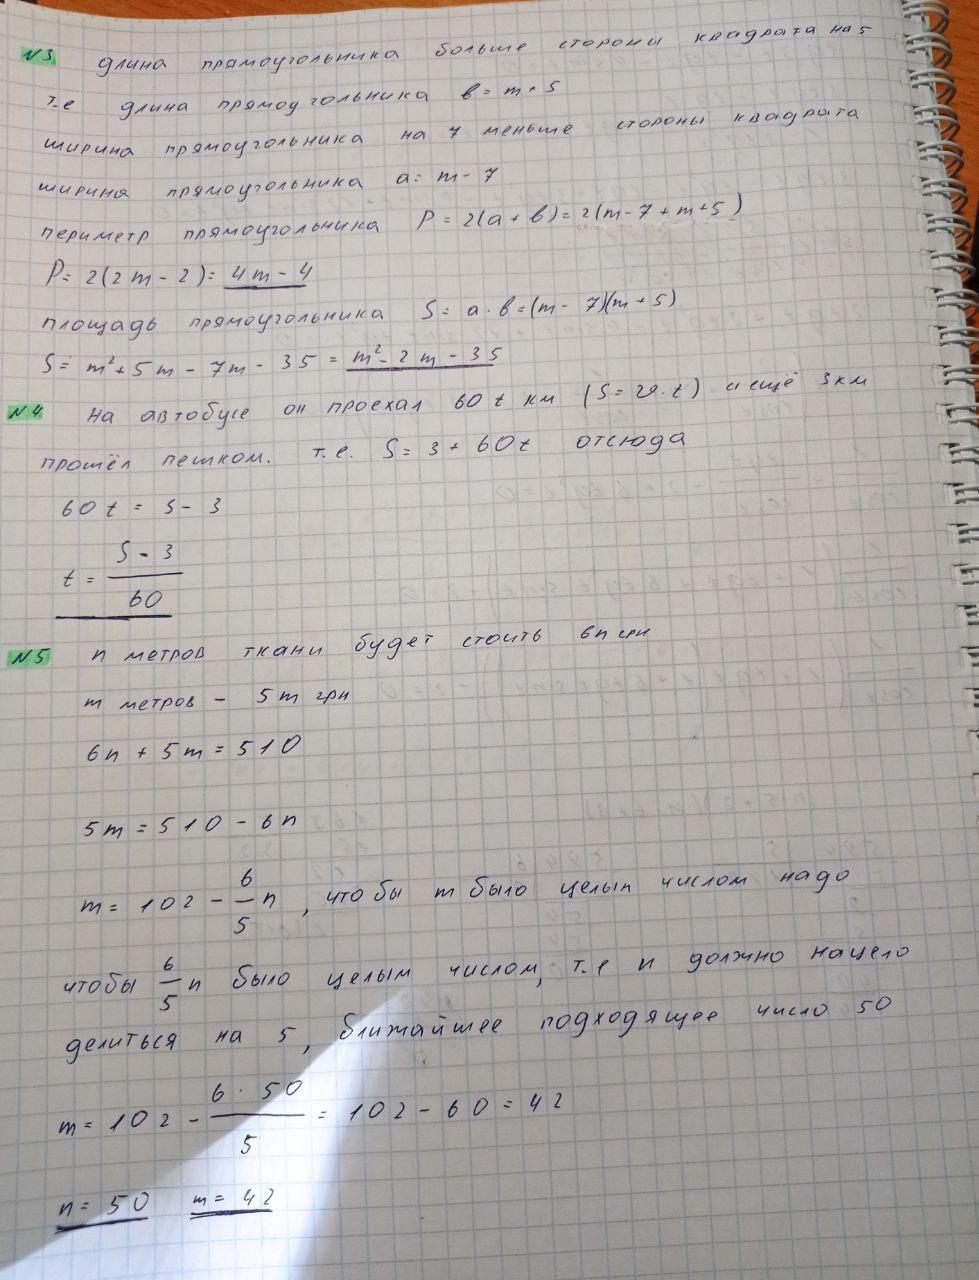 №3 длина прямоугольника больше стороны квадрата на 5
т.е длина прямоугольника b = m + 5
ширина прямоугольника на 7 меньше стороны квадрата
ширина прямоугольника a = m - 7
периметр прямоугольника P = 2(a + b) = 2(m - 7 + m + 5)
P = 2(2m - 2) = 4m - 4
площадь прямоугольника S = a · b = (m - 7)(m + 5)
S = m² + 5m - 7m - 35 = m² - 2m - 35
№4 на автобусе он проехал 60t км (S = v·t) и ещё 3 км
прошёл пешком. т.е. S = 3 + 60t отсюда
60t = S - 3
t = (S - 3)/60
№5 n метров ткани будет стоить 6n грн
m метров - 5m грн
6n + 5m = 510
5m = 510 - 6n
m = 102 - 6/5 n, чтобы m было целым числом надо
чтобы 6/5 n было целым числом, т.е n должно нацело
делиться на 5, ближайшее подходящее число 50
m = 102 - (6 · 50)/5 = 102 - 60 = 42
n = 50 m = 42